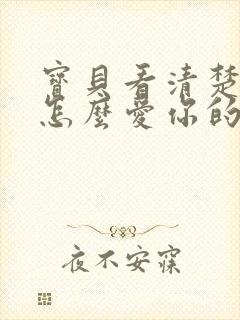 寶貝看清楚
怎麼愛你的
夜不安寐